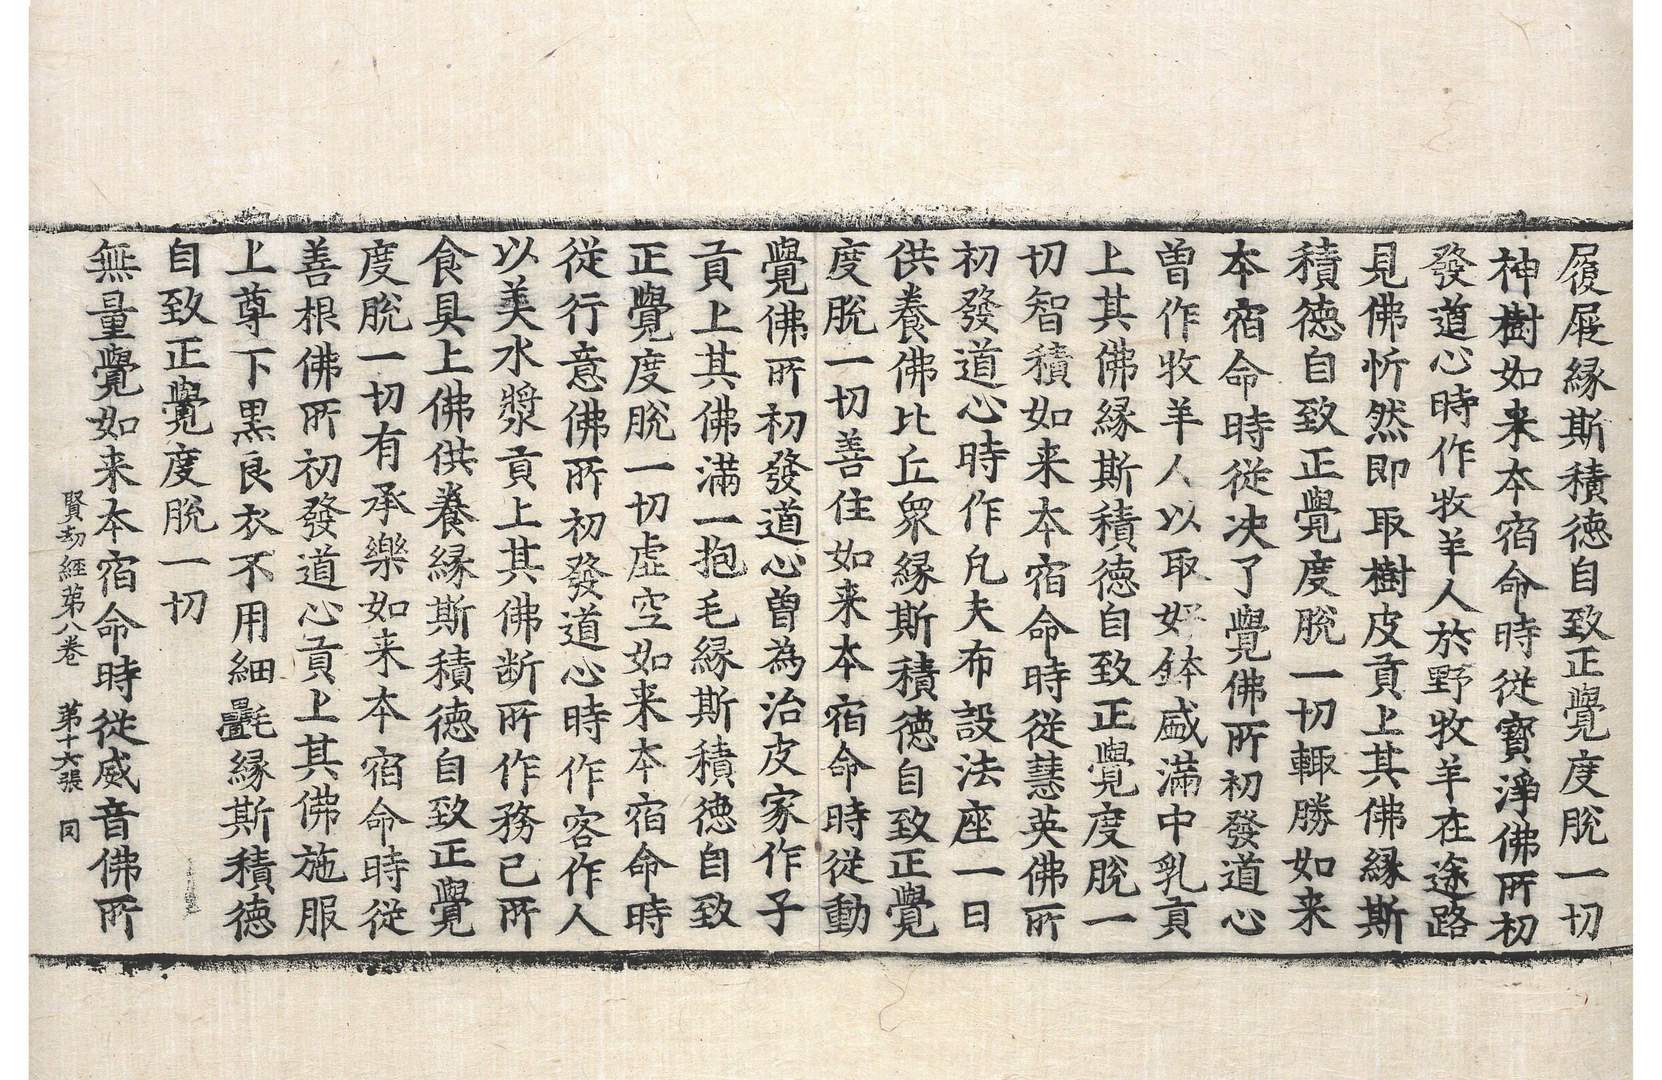 履屐縁斯積德自致正覺度脫一切
神樹如来本宿命時從寳淨佛所初
發道心時作牧羊人於野牧羊在途路
見佛忻然即取樹皮貢上其佛縁斯
積德自致正覺度脫一切輙勝如来
本宿命時從决了覺佛所初發道心
曽作牧羊人以取好鉢盛滿中乳貢
上其佛縁斯積德自致正覺度脫一
切智積如来本宿命時從慧英佛所
初發道心時作凡夫布設法座一日
供養佛比丘衆縁斯積德自致正覺
度脫一切善住如来本宿命時從動
覺佛所初發道心曽為治皮家作子
貢上其佛滿一抱毛縁斯積德自致
正覺度脫一切虚空如来本宿命時
從行意佛所初發道心時作客作人
以美水漿貢上其佛断所作務已所
食具上佛供養縁斯積德自致正覺
度脫一切有承樂如来本宿命時從
善根佛所初發道心貢上其佛施服
上尊下黒良衣不用細㲲縁斯積德
自致正覺度脫一切
無量覺如来本宿命時從威音佛所
賢劫經第八卷 第十六張 同